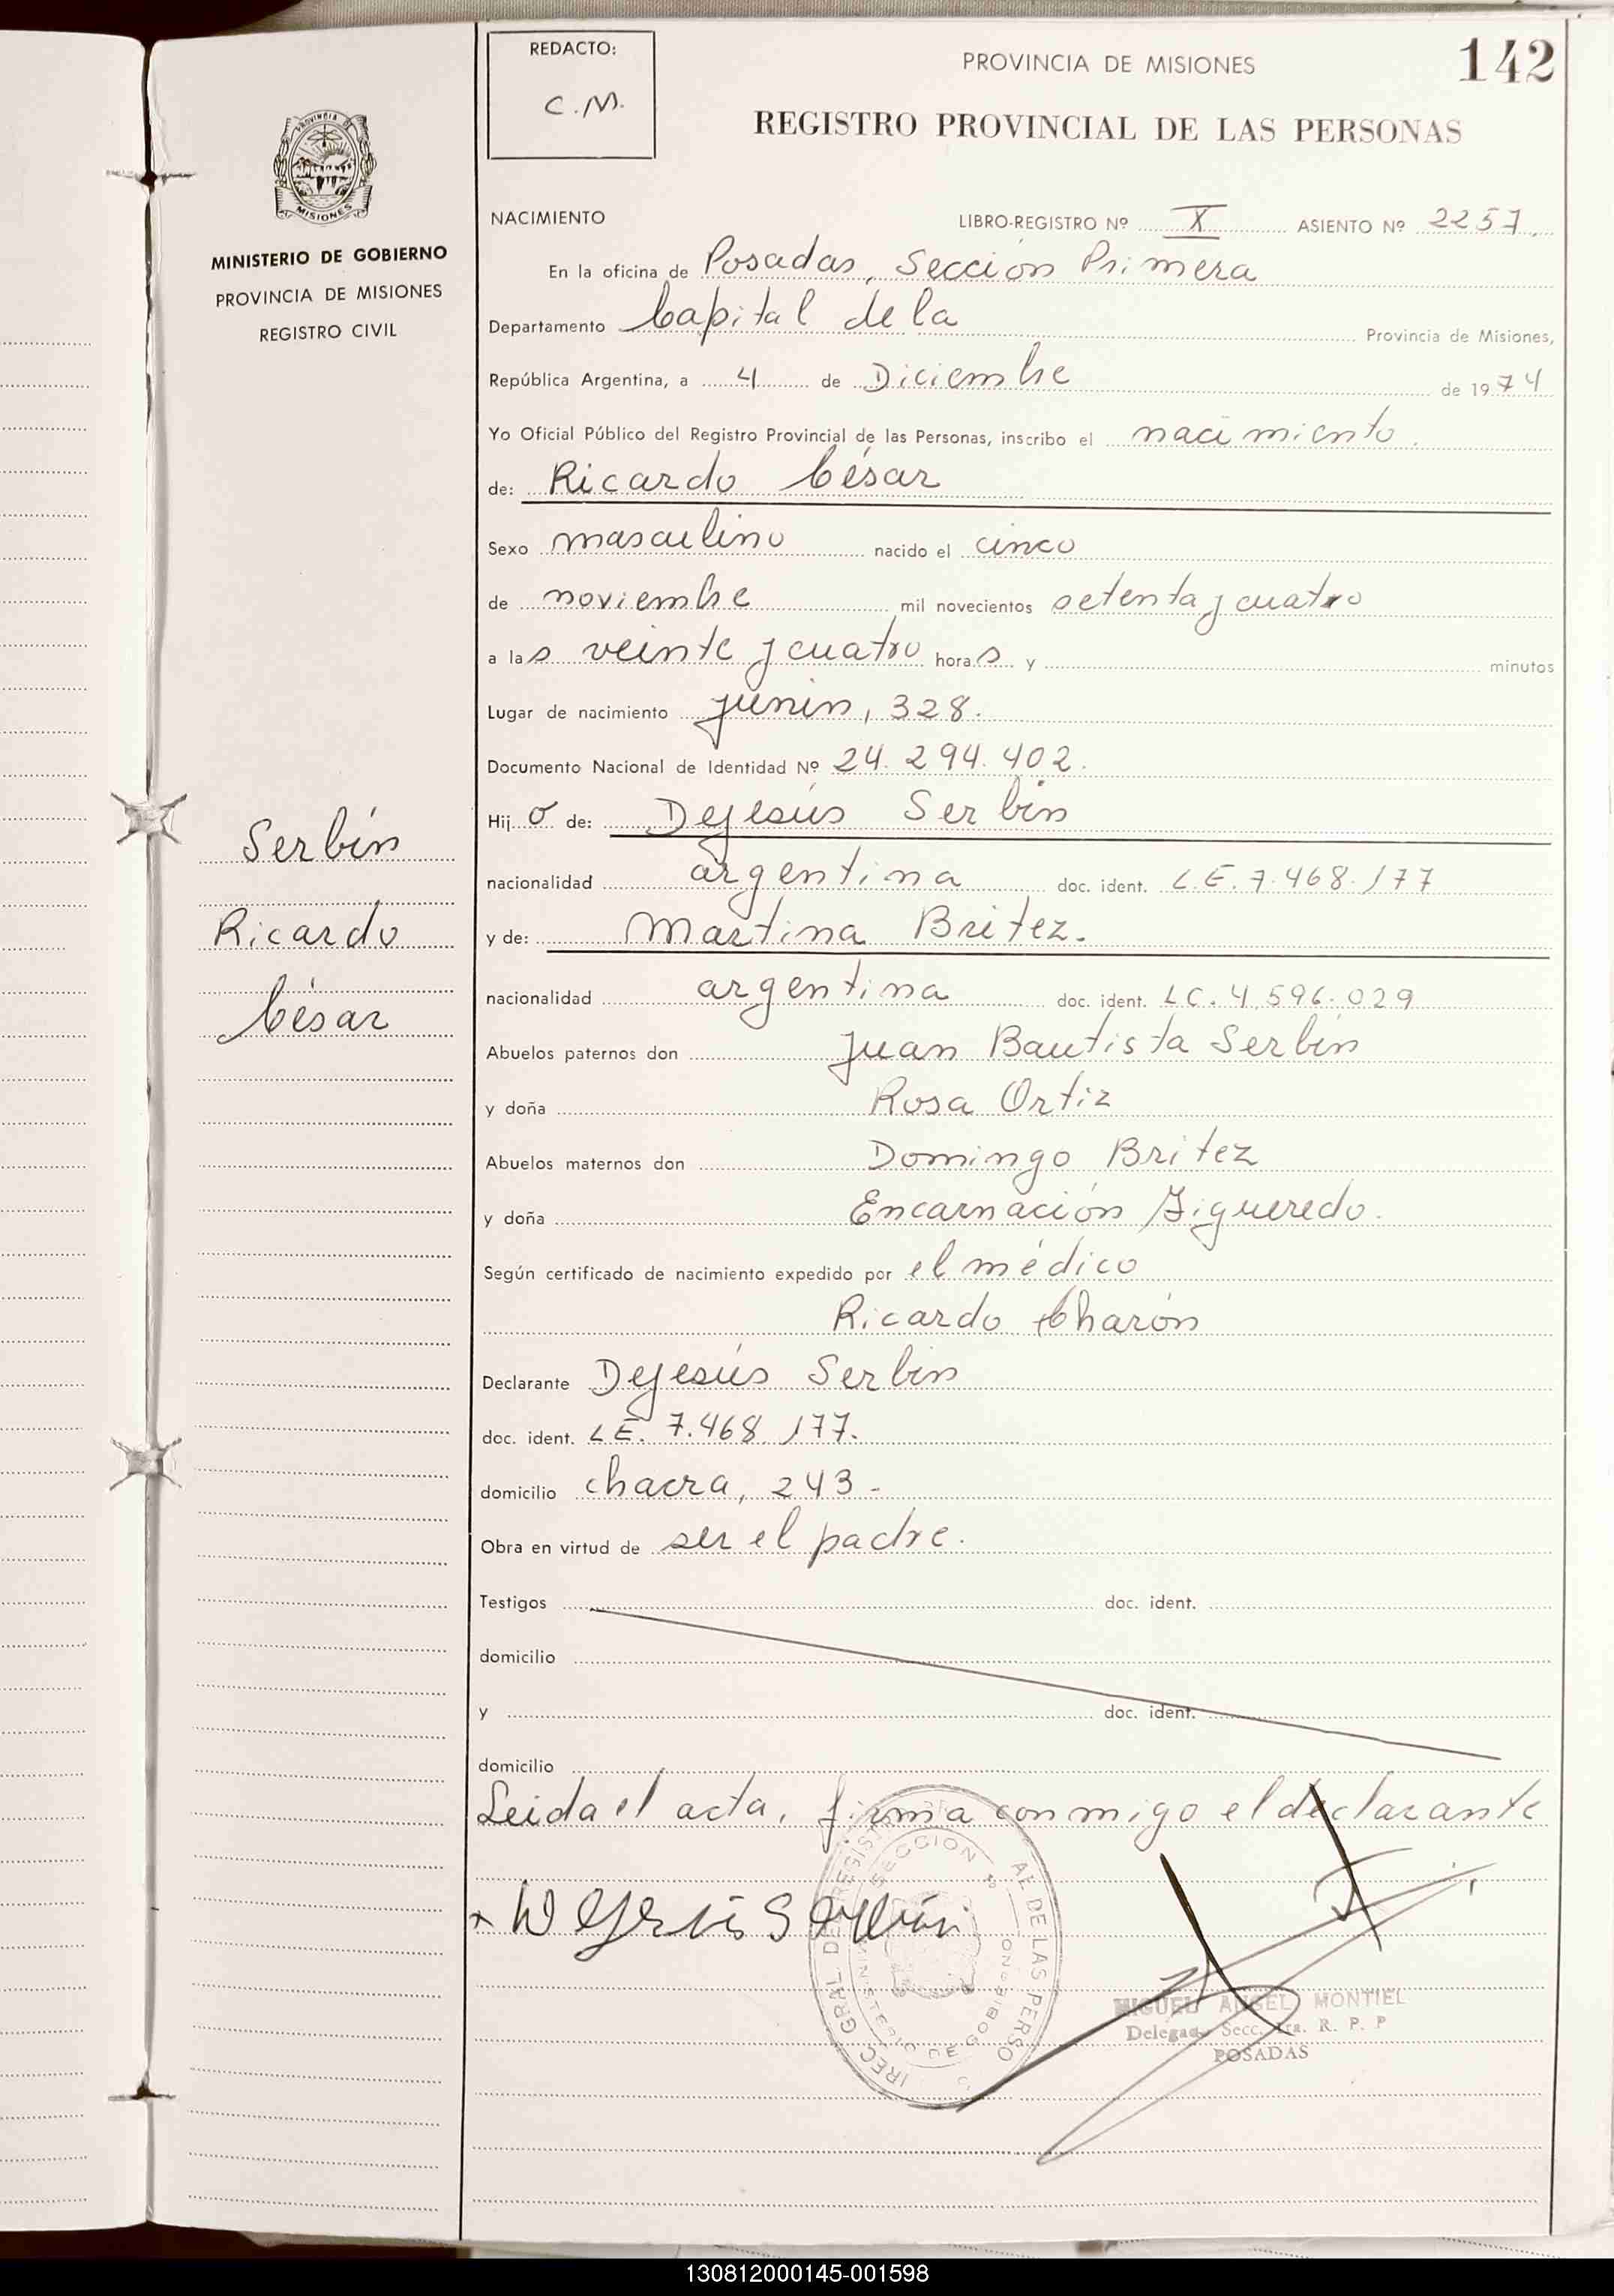 REDACTO:
C.M.
PROVINCIA DE MISIONES
142
REGISTRO PROVINCIAL DE LAS PERSONAS
PROVINCIA DE
MISIONES
MINISTERIO DE GOBIERNO
PROVINCIA DE MISIONES
REGISTRO CIVIL
Serbín
Ricardo
César
NACIMIENTO LIBRO-REGISTRO Nº X ASIENTO Nº 2257.
En la oficina de Posadas, Sección Primera
Departamento Capital de la Provincia de Misiones,
República Argentina, a 4 de Diciembre de 1974
Yo Oficial Público del Registro Provincial de las Personas, inscribo el nacimiento.
de: Ricardo César
Sexo masculino nacido el cinco
de noviembre mil novecientos setenta y cuatro
a las veinte y cuatro horas y minutos
Lugar de nacimiento junín, 328.
Documento Nacional de Identidad Nº 24.294.402.
Hijo de: Dejesús Serbín
nacionalidad argentina doc. ident. L.E. 7.468.177
y de: Martina Britez.
nacionalidad argentina doc. ident. LC. 4.596.029
Abuelos paternos don Juan Bautista Serbín
y doña Rosa Ortiz
Abuelos maternos don Domingo Britez
y doña Encarnación Figueredo.
Según certificado de nacimiento expedido por el médico
Ricardo Charón
Declarante Dejesús Serbín
doc. ident. LE. 7.468.177.
domicilio chacra, 243-
Obra en virtud de ser el padre.
Testigos doc. ident.
domicilio
y doc. ident.
domicilio
Leida el acta, firma conmigo el declarante
SECCION
MINISTERIO DE GOBIERNO
MIGUEL ANGEL MONTIEL
Delegado Secc. 1ra. R. P. P
POSADAS
130812000145-001598